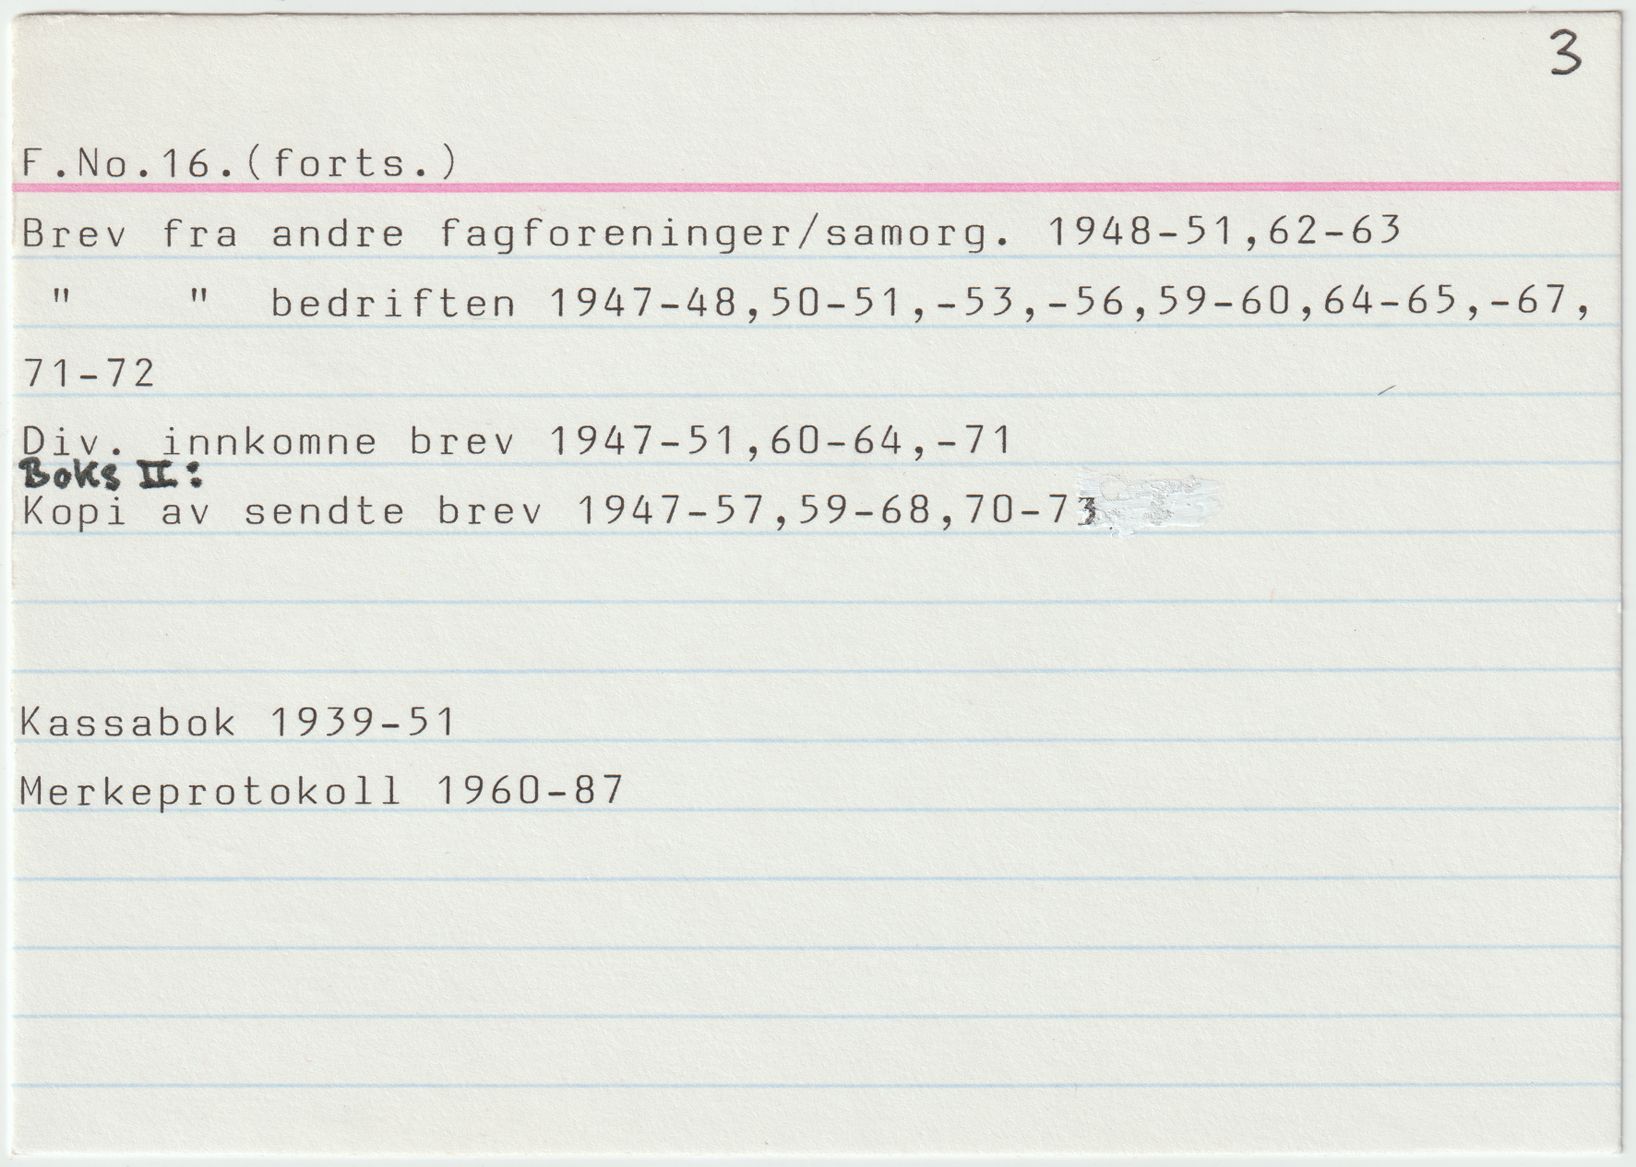 3
F.No.16.(forts.)
Brev fra andre fagforeninger/samorg. 1948-51,62-63
" " bedriften 1947-48,50-51,-53,-56,59-60,64-65,-67,
71-72
Div. innkomne brev 1947-51,60-64,-71
Boks II:
Kopi av sendte brev 1947-57,59-68,70-73
Kassabok 1939-51
Merkeprotokoll 1960-87